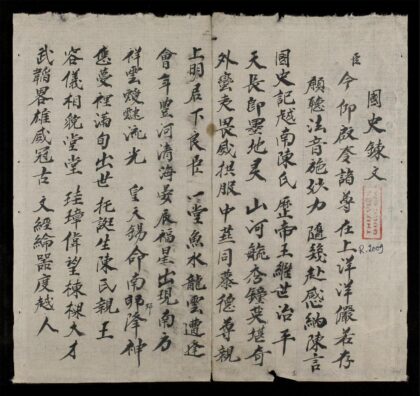 國史錄文
臣今仰啟令諸尊在上洋洋儼若存
願聽法音施妙力隨幾赴感納陳言
國史記越南陳氏歷帝王繼世治平
天長即墨地灵山河毓秀鐘英堪奇
外蠻夷畏威拱服中莖同慕德尊親
上明君下良臣一堂魚水龍雲遭逢
會年豐河清海晏辰福星出現南方
祥雲靉靆流光皇天錫命南邦降神
應夢裡滿旬出世托誕生陳氏親王
容儀相貌堂堂珪璋偉望棟樑大才
武韜畧雄威冠古文經綸器度越人
R.2009